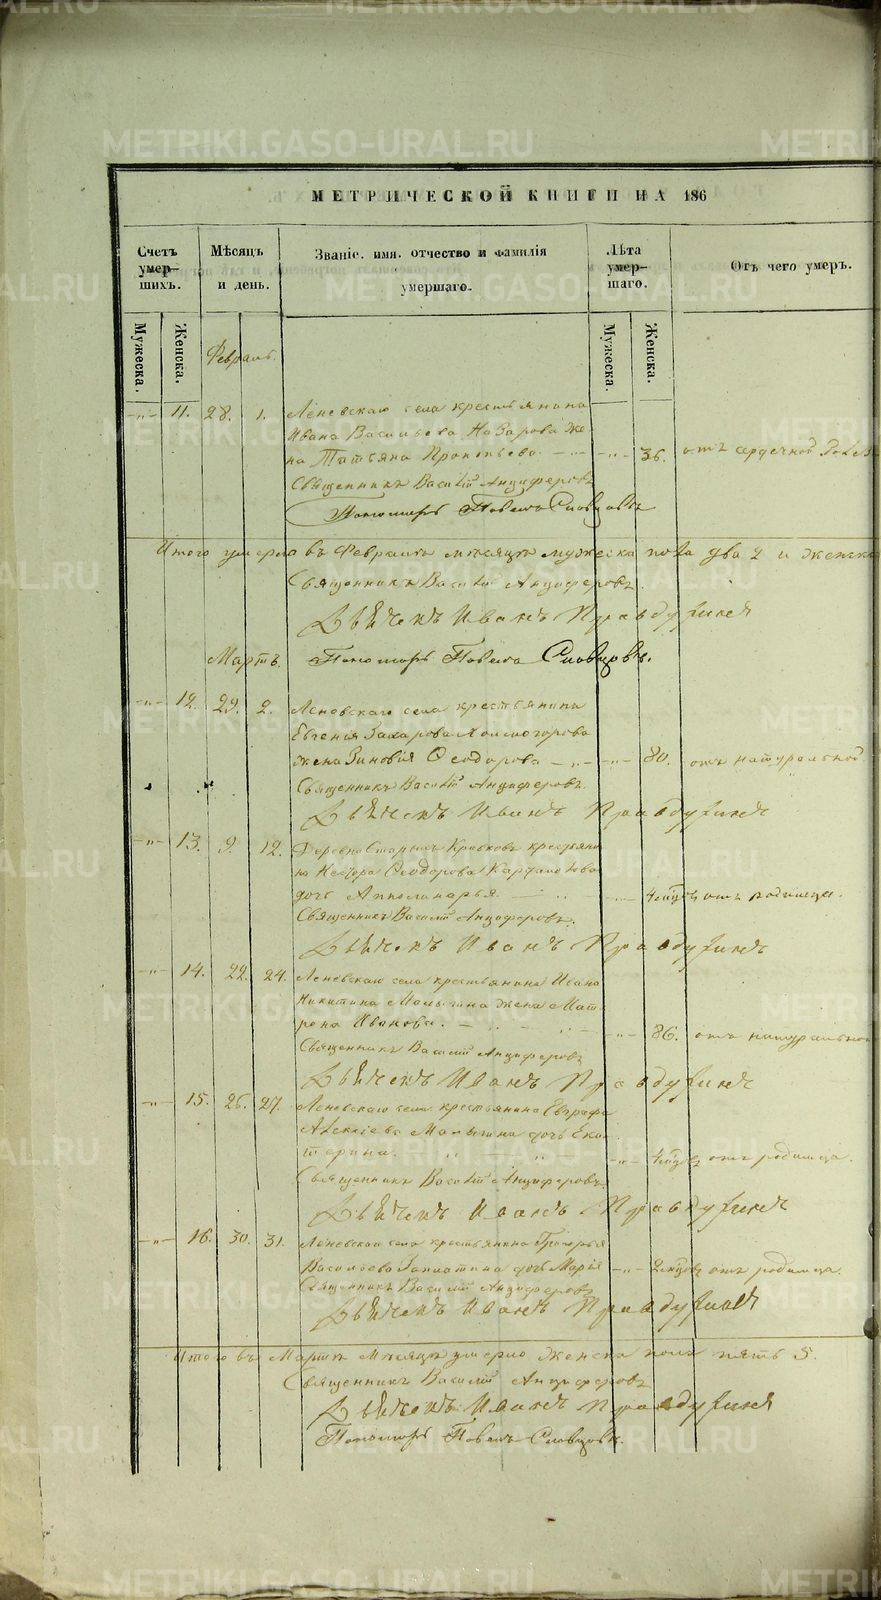 МЕТРИЧЕСКОЙ КНИГИ НА 186
Счетъ умер-шихъ.
Мѣсяцъ и день.
Званіе. имя. отчество и фамилія умершаго.
Лѣта умер-шаго.
Отъ чего умеръ.
Мужеска.
Женска.
Мужеска.
Женска.
Февраль.
-"- 11. 28. 1. Леневскаго села крестьянина
Ивана Васильева Назарова же-
на Татьяна Прокопьева. -"- 36. отъ сердечной
Священникъ Василій Анциферовъ
Пономарь Павелъ Словцовъ
Итого умерло въ Февралѣ мѣсяцѣ мужеска пола два 2 и женска
Священникъ Василій Анциферовъ.
Дьячекъ Иванъ
Мартъ.
Пономарь Павелъ Словцовъ.
-"- 12. 29. 2. Леневскаго села крестьянина
Евгенія Захарова
жена Зиновія Ѳеодорова -"- 80. отъ натуральной
Священникъ Василій Анциферовъ.
Дьячекъ Иванъ
-"- 13. 9. 12. Деревни Старыхъ Кривковъ крестьяни-
на Нестора Ѳеодорова
дочь Апполинарья. -"- 4 мѣсяц. отъ родимца.
Священникъ Василій Анциферовъ.
Дьячекъ Иванъ
-"- 14. 22. 24. Леневскаго села крестьянина Ивана
Никитина Малыгина жена Мат-
рона Иванова. -"- 86. отъ натуральной
Священникъ Василій Анциферовъ
Дьячекъ Иванъ
-"- 15. 26. 27. Леневскаго села крестьянина Евграфа
Алексіева Малыгина дочь Ека-
терина. -"- отъ родимца.
Священникъ Василій Анциферовъ.
Дьячекъ Иванъ
-"- 16. 30. 31. Леневскаго села крестьянина Григорья
Васильева Запиатина дочь Марія -"- отъ родимца.
Священникъ Василій Анциферовъ
Дьячекъ Иванъ
Итого въ Мартѣ мѣсяцѣ умерло женска пола пять 5.
Священникъ Василій Анциферовъ
Дьячекъ Иванъ
Пономарь Павелъ Словцовъ.
METRIKI.GASO-URAL.RU